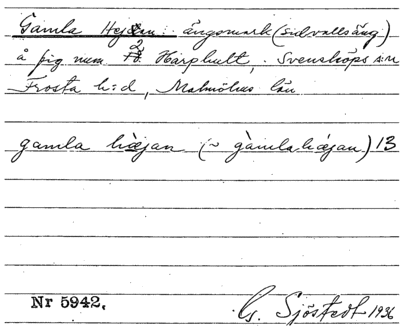 Gamla Hejan ängsmark (sidvallsäng)
å äg. num 2 Harphult, Svensköps s:n
Frosta h:d, Malmöhus län
gamla hæjan (~ gàmlahæ̀jan) 13
Nr 5942. G. Sjöstedt 1936